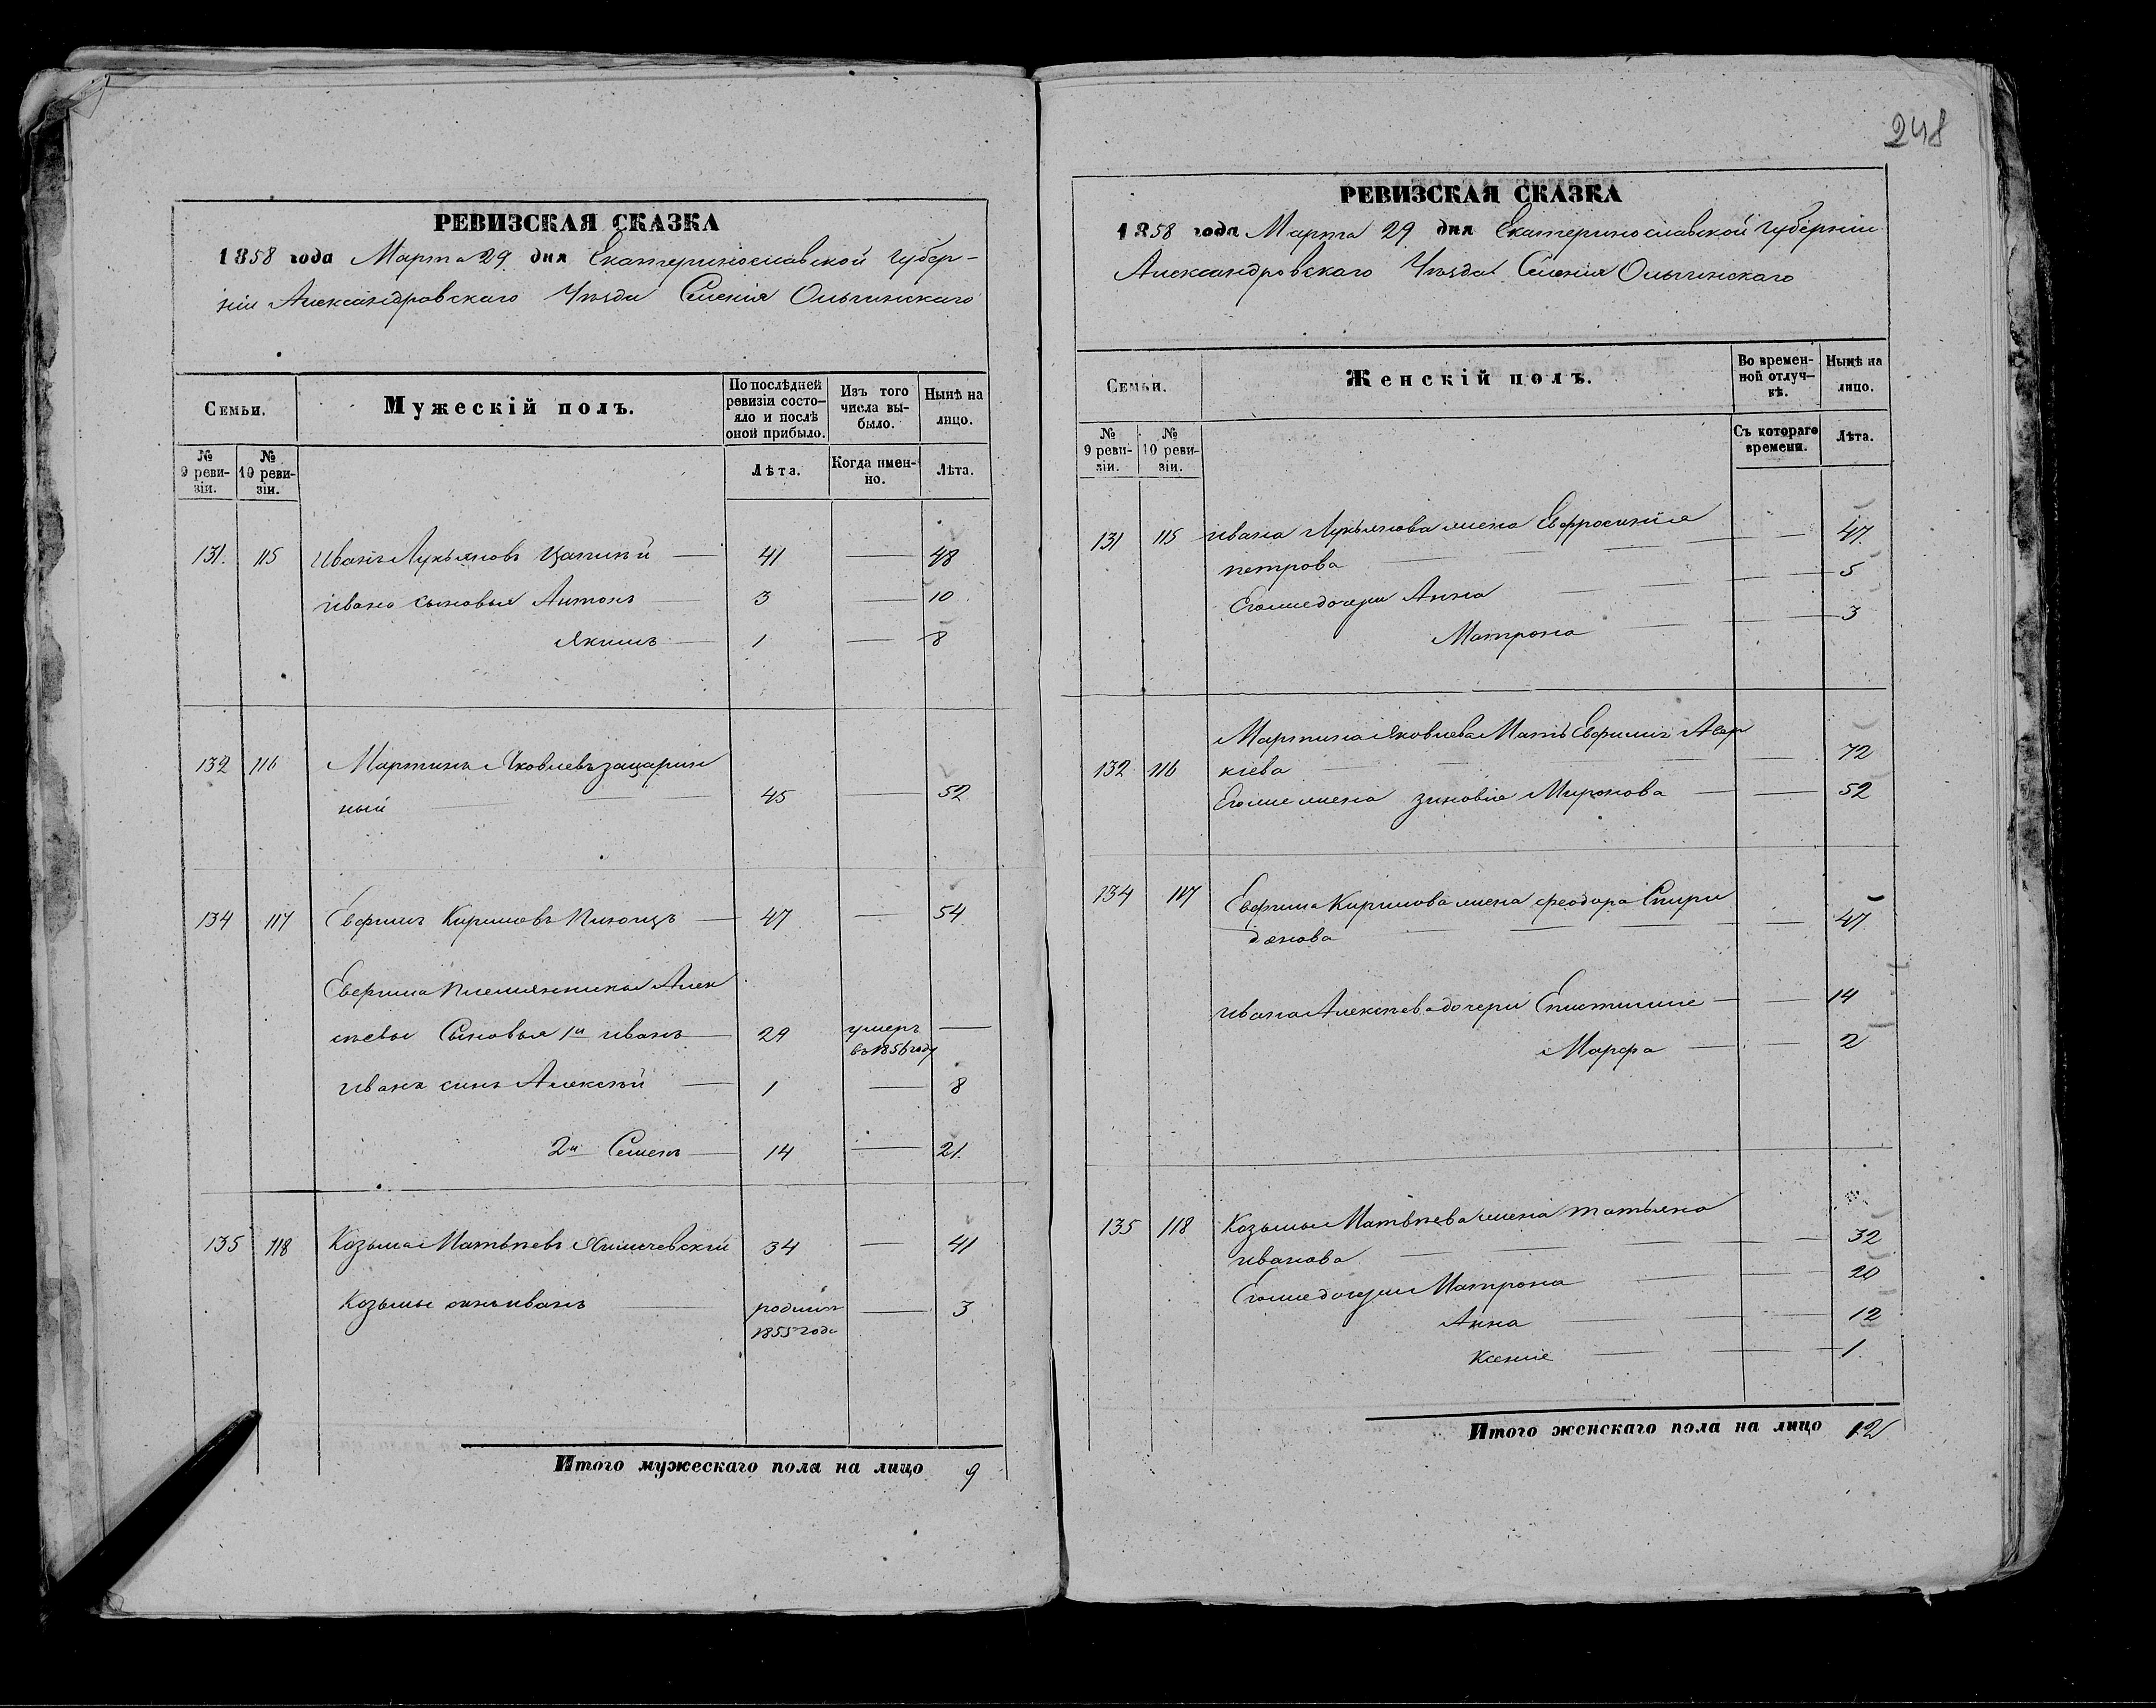 248
РЕВИЗСКАЯ СКАЗКА
1858 года Марта 29 дня Екатеринославской Губер-
ніи Александровскаго Уѣзда Селенія Ольгинскаго
Семьи.
Мужескій полъ.
По послѣдней ревизіи состояло и послѣ оной прибыло.
Изъ того числа выбыло.
Нынѣ на лицо.
№ 9 ревизіи.
№ 10 ревизіи.
Лѣта.
Когда именно.
Лѣта.
131. 115 Иванъ Лукьяновъ — 41 — 48
Ивана сыновья Антонъ 3 — 10
Якимъ — 1 — 8
132 116 Мартинъ Яковлевъ зацарин
ный — 45 — 52
134 117 Евфимъ Кириловъ — 47 — 54
Евфима племянника Алек
сѣевы Сыновья 1й Иванъ — 29 умеръ въ 1856 году —
Ивана сынъ Алексѣй — 1 — 8
2й Семенъ — 14 — 21.
135 118 Козьма Матвѣевъ 34 — 41
Козьмы сынъ Иванъ родился 1855 года — 3
Итого мужескаго пола на лицо 9
РЕВИЗСКАЯ СКАЗКА
1858 года Марта 29 дня Екатеринославской Губерніи
Александровскаго Уѣзда Селенія Ольгинскаго
Семьи.
Женскій полъ.
Во временной отлучкѣ.
Нынѣ на лицо.
№ 9 ревизіи.
№ 10 ревизіи.
Съ котораго времени.
Лѣта.
131 115 Ивана Лукьянова жена Евфросинія
петрова — — 47.
Егоже дочери Анна — — 5
Матрона — — 3
132 116 Мартина Яковлева Мать Евфимія Авер
кіева — — 72
Егоже жена зиновія Миронова — — 52
134 117 Евфима Кирилова жена феодора Спири
донова — — 47.
Ивана Алексѣева дочери Епистимія — — 14
Марфа — — 2
135 118 Козьмы Матвѣева жена татьяна
иванова — — 32
Егоже дочери Матрона — — 20
Анна — — 12
Ксенія — — 1.
Итого женскаго пола на лицо 12